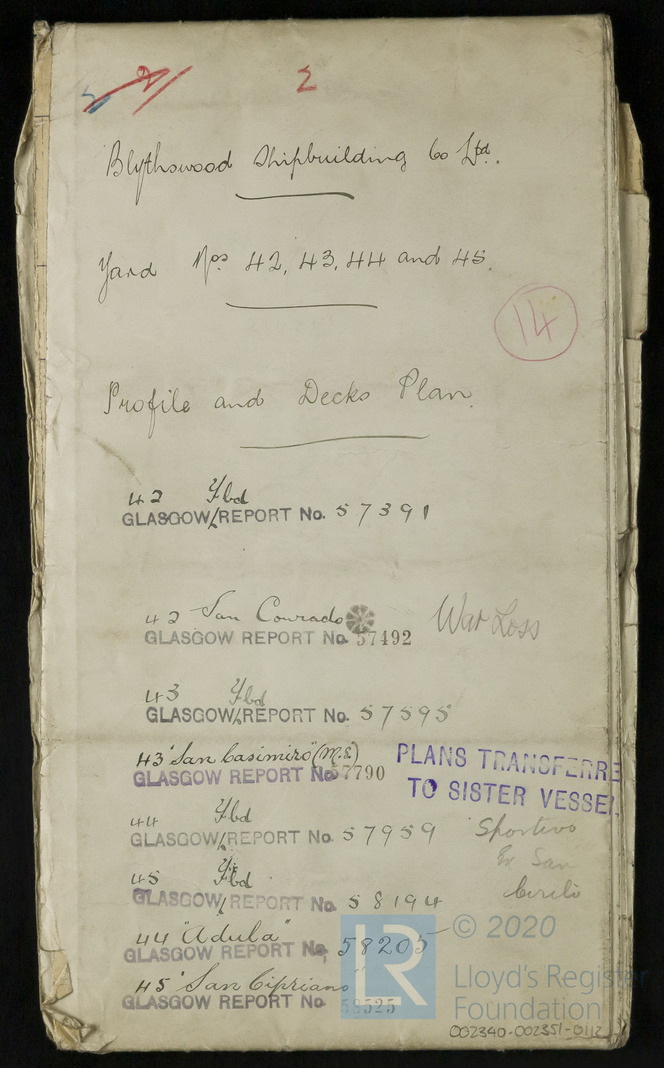 2
Blythswood Shipbuilding Co Ltd.
Yard Nos 42, 43, 44 and 45.
14
Profile and Decks Plan.
42 Ybd
GLASGOW/REPORT No. 57391
42 San Conrado War Loss
GLASGOW REPORT No. 57492
43 Ybd
GLASGOW/REPORT No. 57595
43 "San Casimiro" (M.S.)
GLASGOW REPORT No 57790
PLANS TRANSFERRE
TO SISTER VESSEL
44 Ybd
GLASGOW/REPORT No. 57959
Sportivo
Ex San
Cirilo
45 Ybd
GLASGOW/REPORT No. 58194
44 "Adula"
GLASGOW REPORT No. 58205
45 "San Cipriano"
GLASGOW REPORT No 58525
LR
© 2020
Lloyd's Register
Foundation
002340-002351-0112